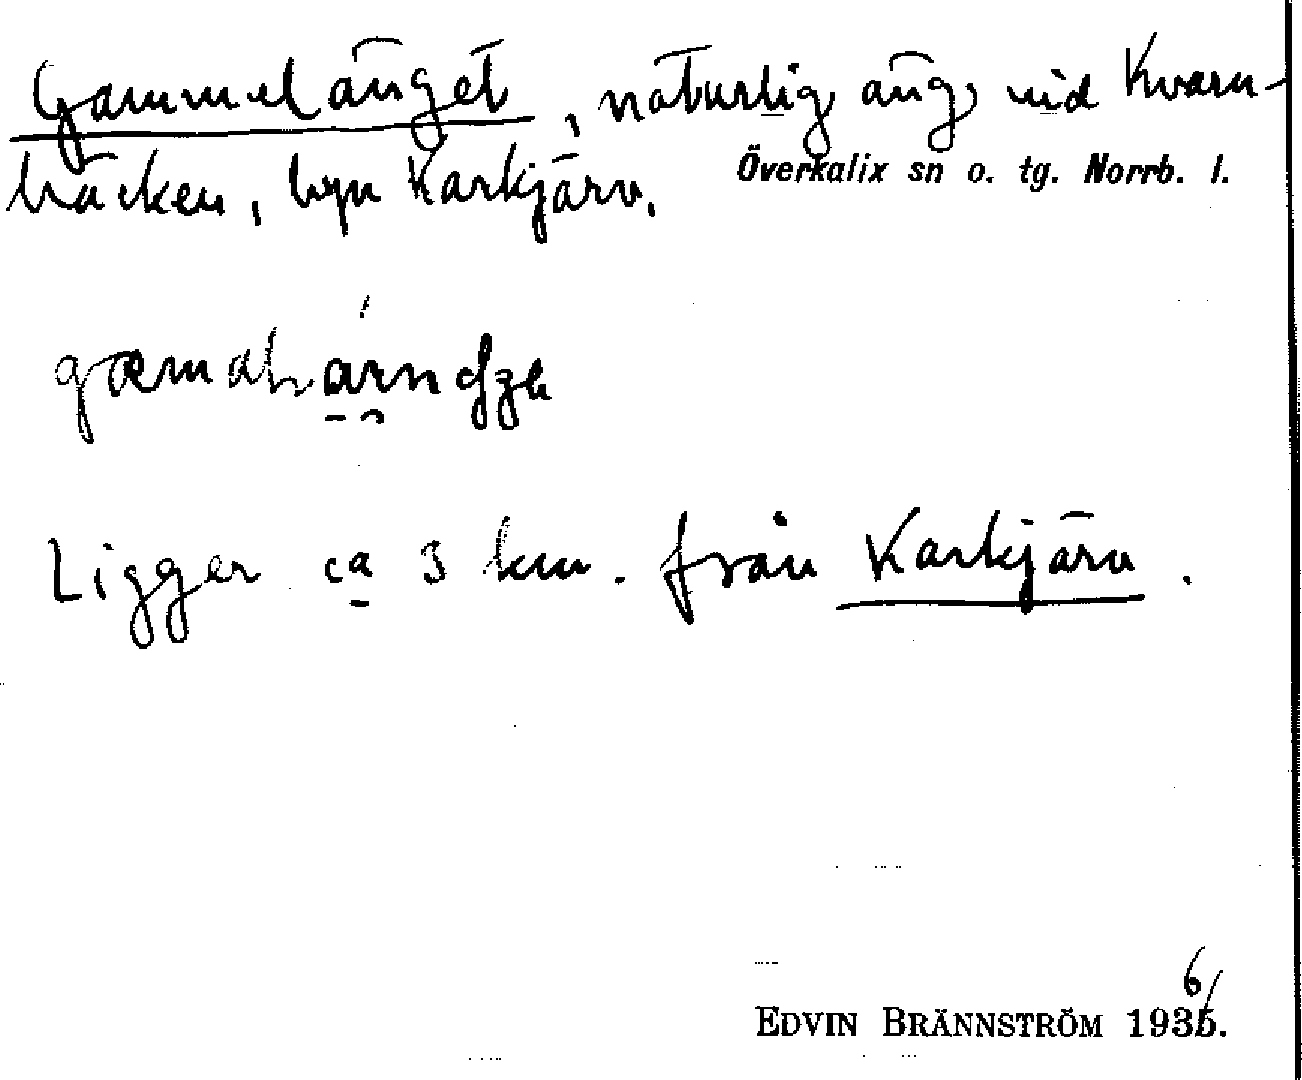 Gammelänget, naturlig äng, vid Kvarn-
bäcken, byn Karkjärv.
Överkalix sn o. tg. Norrb. l.
Ligger ca 3 km. från Karkjärv.
6/
EDVIN BRÄNNSTRÖM 1935.